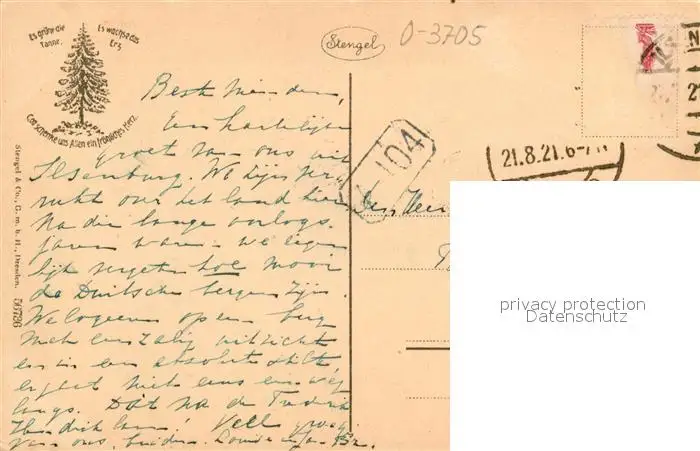 Es grüne die
Tanne,
Es wachse das
Erz,
Gott schenke uns Allen ein fröhliches Herz.
Stengel
0-3705
Stengel & Co., G. m. b. H., Dresden.
56736
104
21.8.21.6-7
Beste vrienden,
Een hartelijke
groet van ons uit
Ilsenburg. We zijn
over het land hier
Na die lange oorlogs-
jaren waren we eigen-
lijk vergeten hoe mooi
de Duitsche bergen zijn.
We logeeren op een berg
met een zalig uitzicht
en in een absolute stilte
er gaat niet eens een weg
langs. Dát na de Frederik
Hendriklaan! Veel
van ons beiden. Louise
Den Heer
privacy protection
Datenschutz